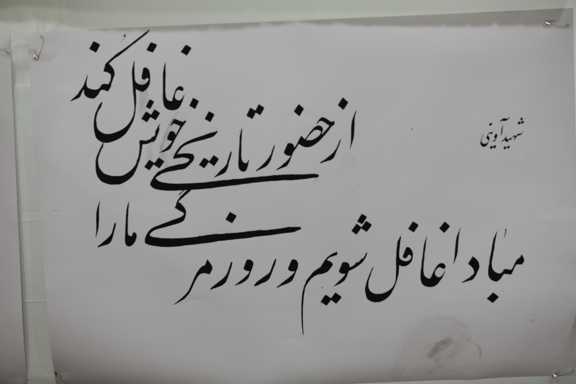 شهید آوینی
مبادا غافل شویم و روزمرگی ما را
از حضور تاریخی خویش غافل کند